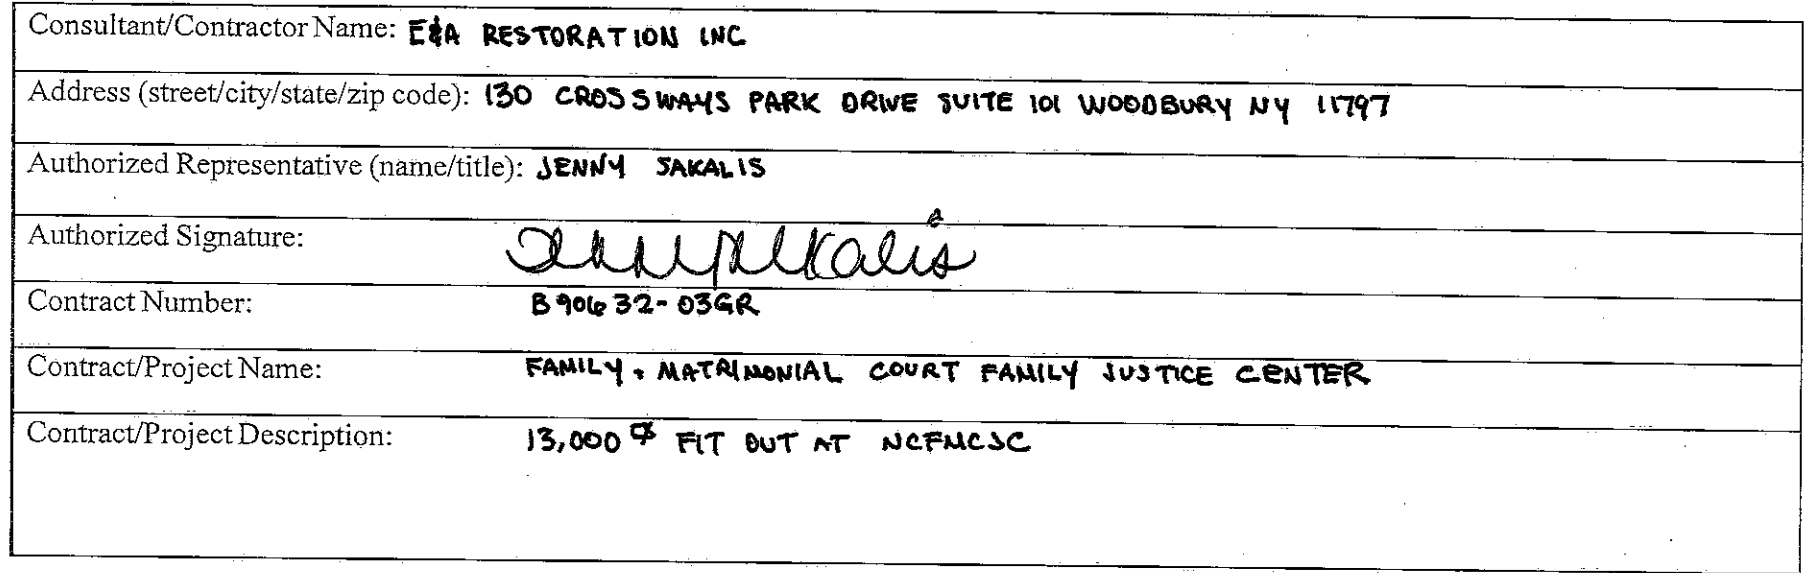 Consultant/Contractor Name: E&A RESTORATION INC
Address (street/city/state/zip code): 130 CROSSWAYS PARK DRIVE SUITE 101 WOODBURY NY 11797
Authorized Representative (name/title): JENNY SAKALIS
Authorized Signature:
Contract Number: B90632-03GR
Contract/Project Name: FAMILY & MATRIMONIAL COURT FAMILY JUSTICE CENTER
Contract/Project Description: 13,000 FIT OUT AT NCFMCJC